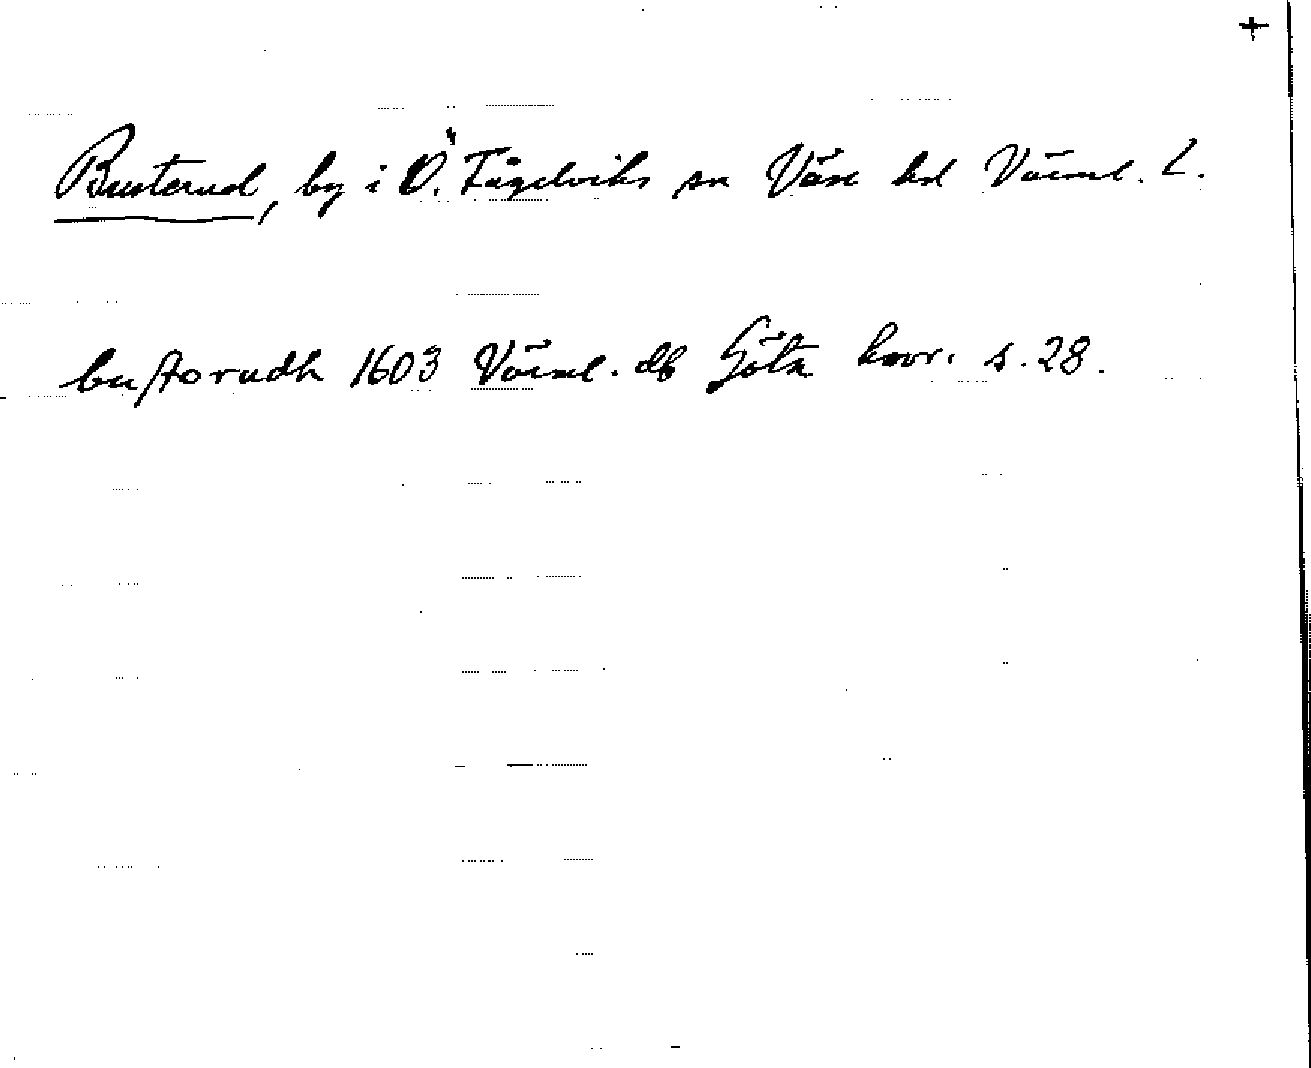 +
Busterud, by i Ö. Fågelviks sn Väse hd Värml. L.
bustorudh 1603 Värml. db Göta hovr. s. 28.